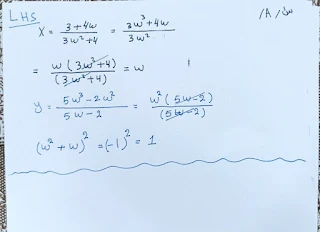 LHS
س / A /
X = 3+4w / 3w²+4 = 3w³+4w / 3w²
= w(3w²+4) / (3w²+4) = w
y = 5w³-2w² / 5w-2 = w²(5w-2) / (5w-2)
(w²+w)² = (-1)² = 1